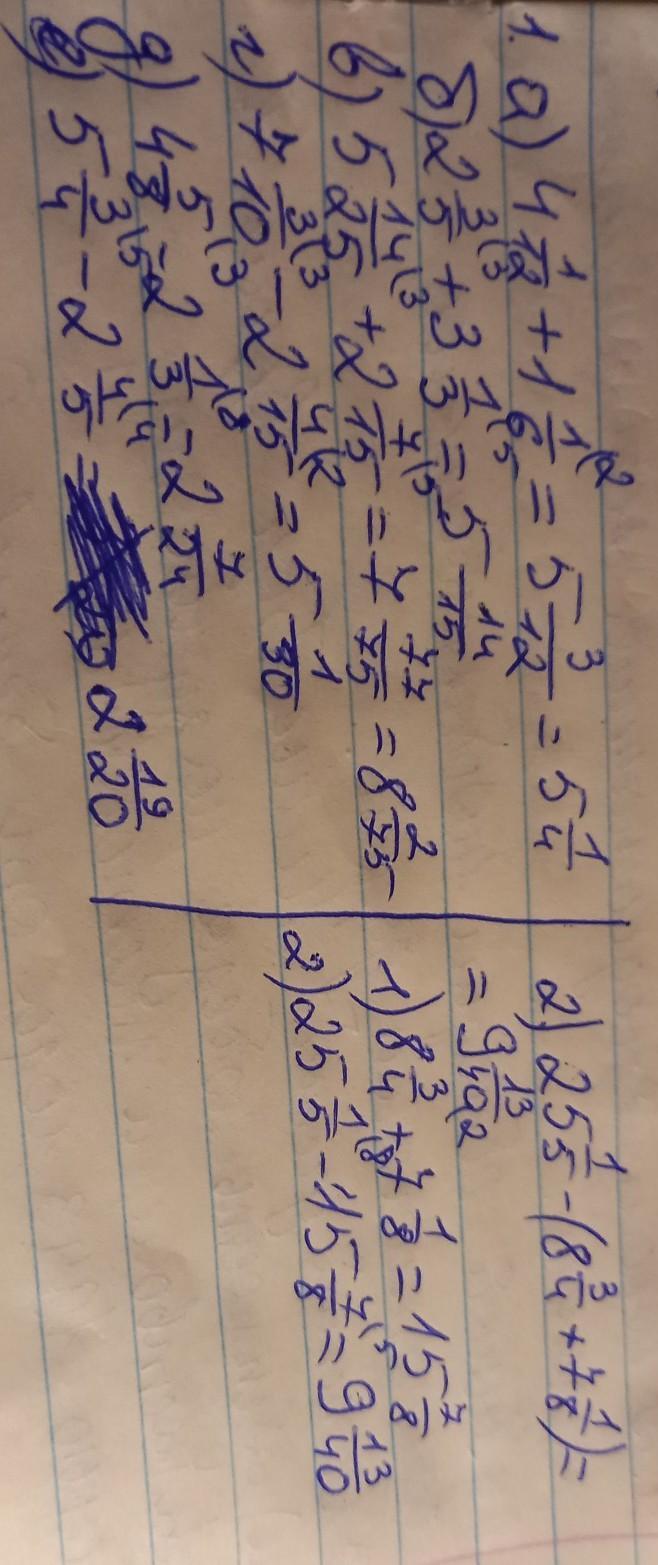 1. а) 4 1/12 + 1 1/6 (2 = 5 3/12 = 5 1/4
б) 2 3/5 (3 + 3 1/3 (5 = 5 14/15
в) 5 14/25 (3 + 2 7/15 (5 = 7 77/75 = 8 2/75
г) 7 3/10 (3 - 2 4/15 (2 = 5 1/30
д) 4 5/8 (3 - 2 1/3 (8 = 2 7/24
е) 5 3/4 (5 - 2 4/5 (4 = 2 19/20
2) 25 1/5 - (8 3/4 + 7 1/8) =
= 9 13/40
1) 8 3/4 (2 + 7 1/8 = 15 7/8
2) 25 1/5 (8 - 15 7/8 (5 = 9 13/40